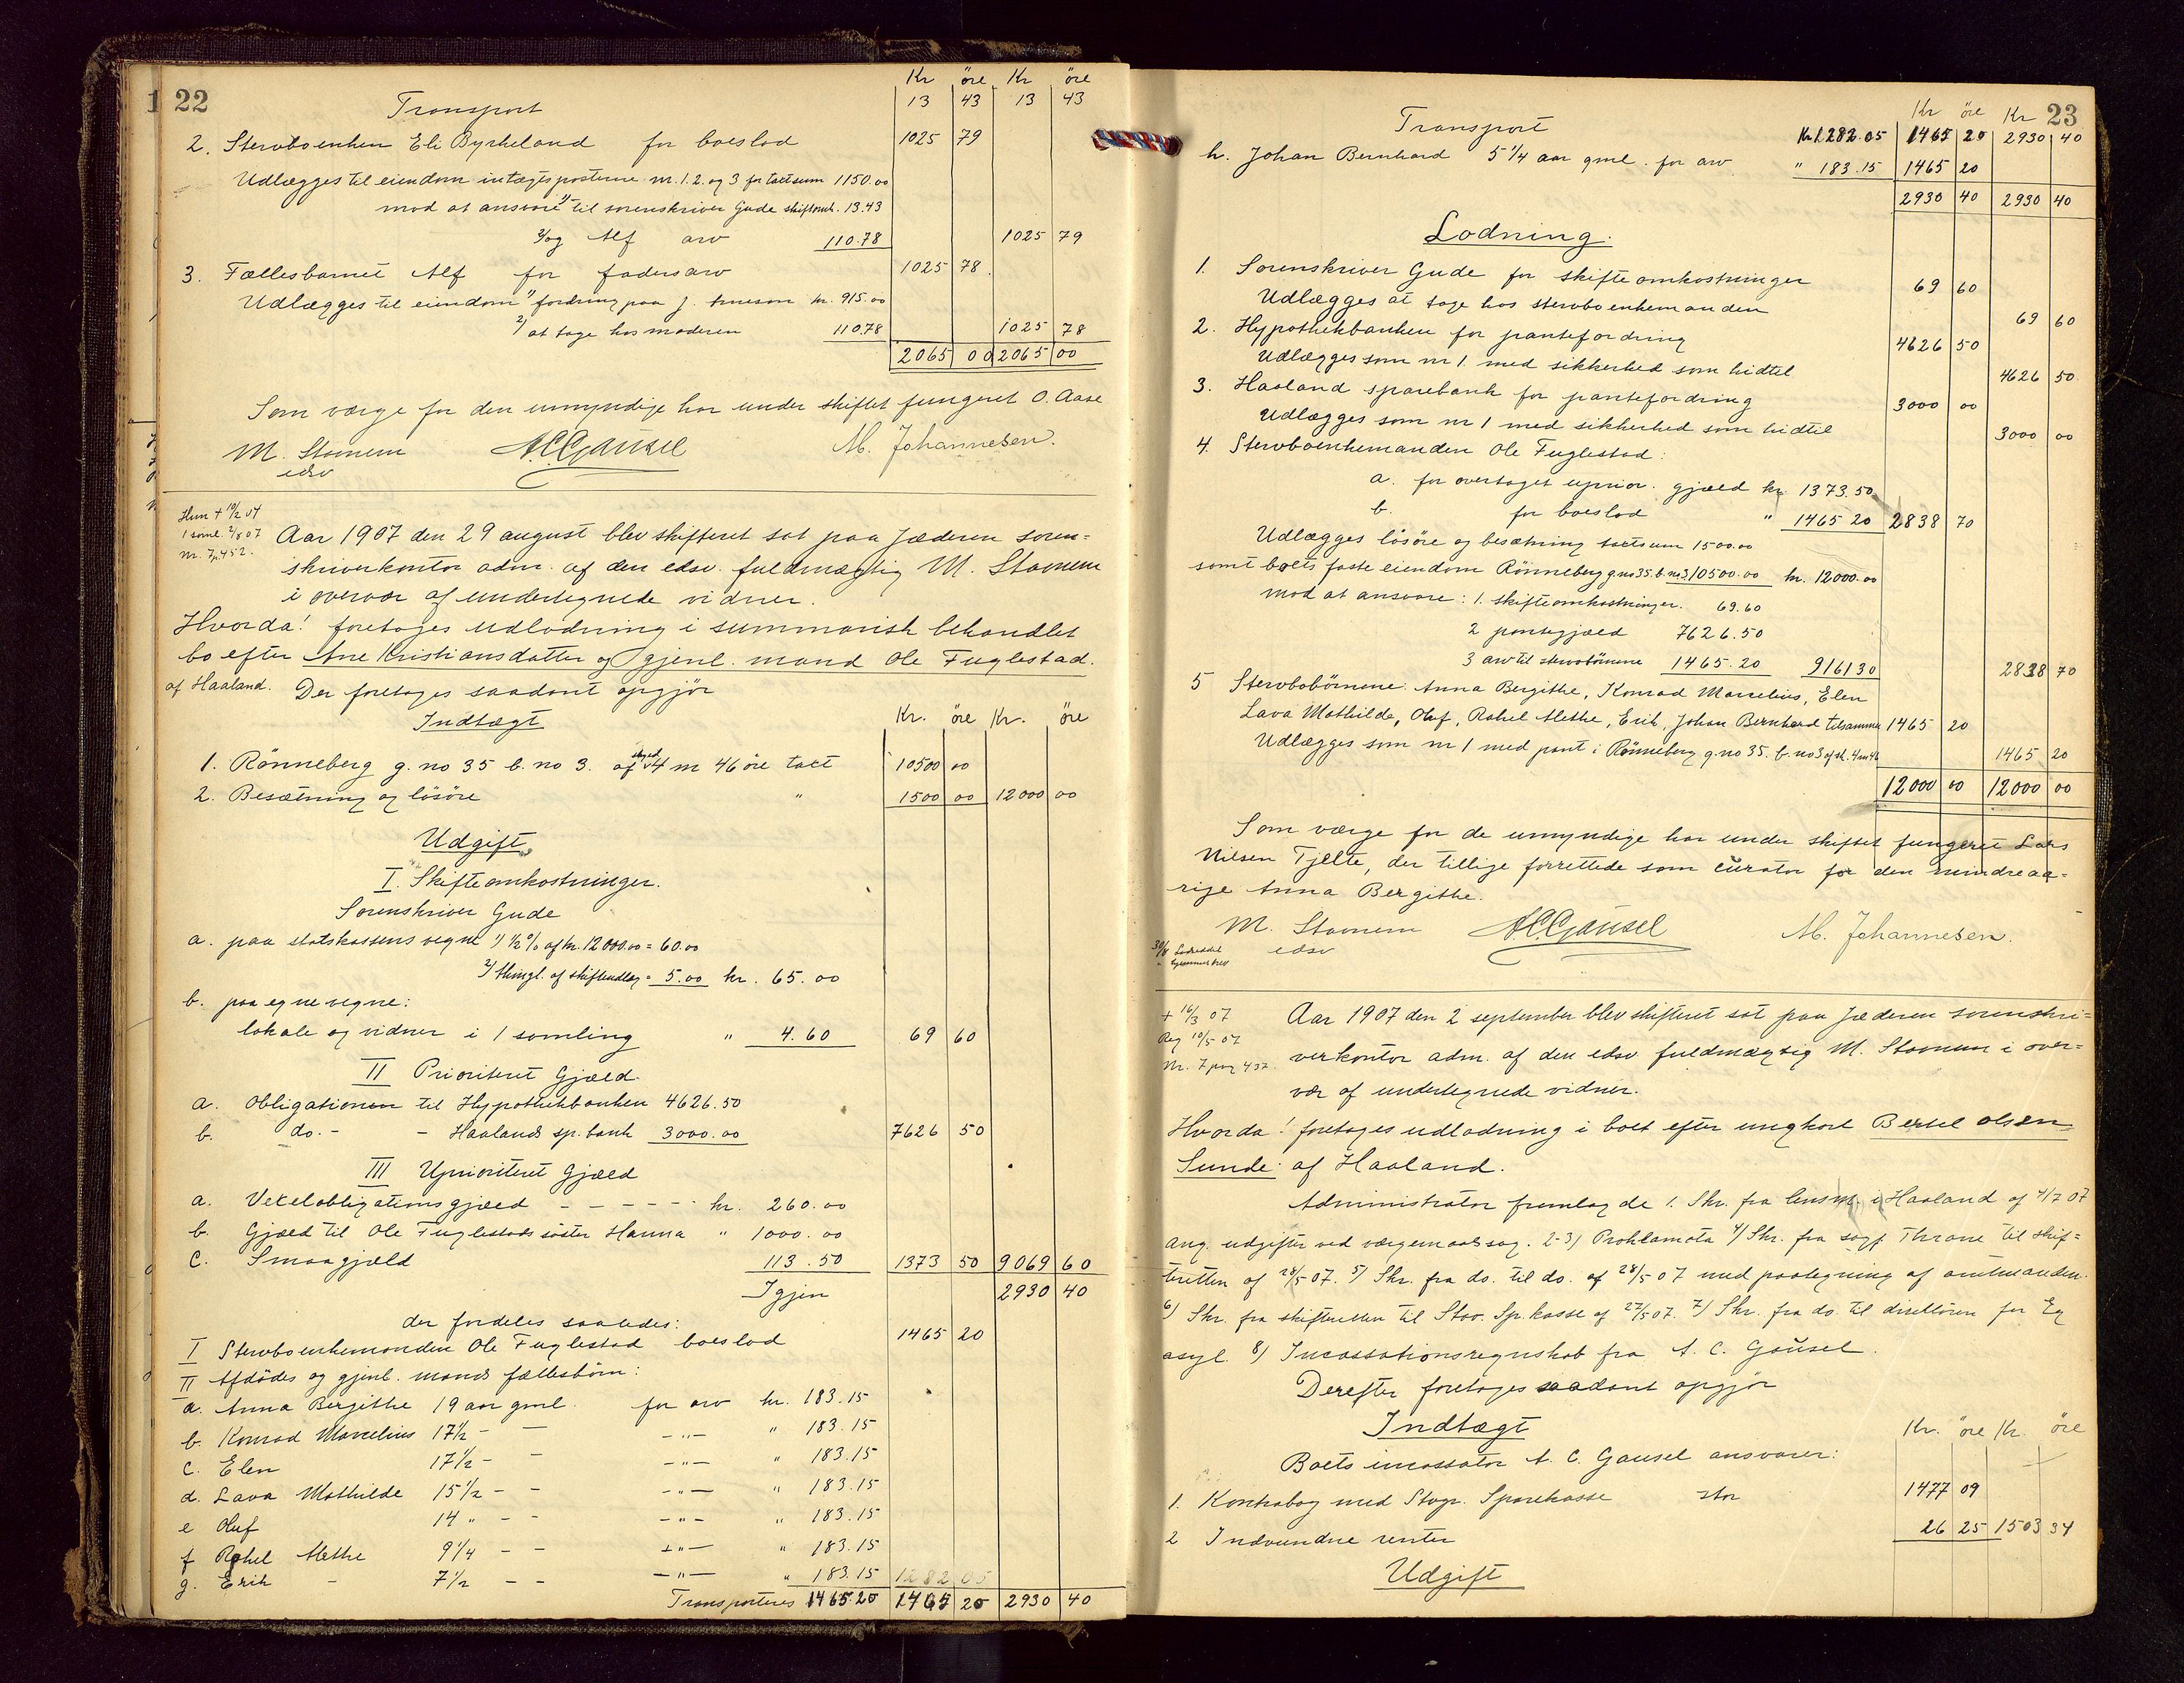 22
Kr öre Kr öre
Transport 13 43 13 43
2. Stervboenken Eli Byrkeland for boeslod 1025 79
Udlægges til eiendom indtægtsposterne nr. 1. 2. og 3 for taxtsum 1150.00
mod at ansvare 1) til sorenskriver Gude skifteomk. 13.43
2) og Alf arv 110.78 1025 79
3. Fællesbarnet Alf for fadersarv 1025 78
Udlægges til eiendom 1) fordring paa J. Arneson kr. 915.00
2) at tage hos moderen 110.78 1025 78
2065 00 2065 00
Som værge for den umyndige har under skiftet fungeret O. Aase
M. Stamem A.C. Gausel M. Johannesen.
edsv
Hun + 10/2 07
1 saml. 2/8 07
nr. 7 p. 452.
Aar 1907 den 29 august blev skifteret sat paa Jæderen soren=
skriverkontor adm. af den edsv. fuldmægtig M. Stamem
i overvær af undertegnede vidner.
Hvorda! foretages udlodning i summarisk behandlet
bo efter Ane Kristiansdatter og gjenl. mand Ole Fuglestad.
af Haaland. Der foretages saadant opgjör
Indtægt Kr. öre Kr. öre
1. Rönneberg g. no 35 b. no 3. af skyld 4 m 46 öre taxt 10500 00
2. Besætning og lösöre " 1500 00 12000 00
Udgift
I. Skifteomkostninger.
Sorenskriver Gude
a. paa statskassens vegne 1) 1/2 % af kr. 12000.00 = 60.00
2) thingl. af skifteudlæg = 5.00 kr. 65.00
b. paa egne vegne:
lokale og vidner i 1 samling " 4.60 69 60
II Prioriteret Gjæld.
a. Obligationen til Hypothekbanken 4626.50
b. do. - - Haalands sp. bank 3000.00 7626 50
III Uprioriteret Gjæld
a. Vexelobligationsgjæld - - - - - kr. 260.00
b. Gjæld til Ole Fuglestads söster Hanna " 1000.00
c. Smaagjæld 113.50 1373 50 9069 60
Igjen 2930 40
der fordeles saaledes:
I Stervboenkemanden Ole Fuglestad boeslod 1465 20
II Afdödes og gjenl. mands fællesbörn:
a. Anna Bergithe 19 aar gml. for arv kr. 183.15
b. Konrad Marcelius 17 1/2 - - - " - " 183.15
c. Elen 17 1/2 - - - " - " 183.15
d. Lava Mathilde 15 1/2 - - - " - " 183.15
e Oluf 14 " - - - " - " 183.15
f Rakel Alethe 9 1/4 - - - " - " 183.15
g. Erik - 7 1/2 - - - " - " 183.15 1282 05
Transporteres 1465.20 1465 20 2930 40
23
Kr öre Kr
Transport Kr 1282.05 1465 20 2930 40
h. Johan Bernhard 5 1/4 aar gml. for arv " 183.15 1465 20
2930 40 2930 40
Lodning:
1. Sorenskriver Gude for skifteomkostninger 69 60
Udlægges at tage hos stervboenkemanden 69 60
2. Hypothekbanken for pantefordring 4626 50
Udlægges som nr 1. med sikkerhed som hidtil 4626 50
3. Haaland sparebank for pantefordring 3000 00
Udlægges som nr 1 med sikkerhed som hidtil 3000 00
4. Stervboenkemanden Ole Fuglestad:
a. for overtaget uprior. gjæld kr. 1373.50
b. for boeslod " 1465 20 2838 70
Udlægges lösöre og besætning taxtsum 1500.00
samt boets faste eiendom Rönneberg g.no 35. b. no 3 10500.00 kr. 12000.00
mod at ansvare: 1. skifteomkostninger. 69.60
2 pantegjæld 7626.50
3 arv til stervbörnene 1465.20 9161 30 2838 70
5 Stervbobörnene: Anna Bergithe, Konrad Marcelius, Elen
Lava Mathilde, Oluf, Rakel Alethe, Erik, Johan Bernhard tilsammen 1465 20
Udlægges som nr 1 med pant i Rönneberg g. no 35. b. no 3 af sk. 4 m 46 1465 20
12000 00 12000 00
Som værge for de umyndige har under skiftet fungeret Lars
Nilsen Tjelte, der tillige forrettede som curator for den mindreaa=
rige Anna Bergithe.
M. Stamem A.C. Gausel M. Johannesen.
edsv
30/8
+ 16/3 07
Reg 10/5 07
Nr. 7 pag 437.
Aar 1907 den 2 september blev skifteret sat paa Jæderen sorenskri=
verkontor adm. af den edsv. fuldmægtig M. Stamem i over=
vær af undertegnede vidner.
Hvorda! foretages udlodning i boet efter ungkarl Bertel Olsen
Sunde af Haaland.
Administrator fremlagde 1. Skr. fra lensm. i Haaland af 4/7 07
ang. udgifter ved værgemaalssag. 2-3) Proklamata 4) Skr. fra sagf. Thrane til skif=
teretten af 28/5 07. 5) Skr. fra do. til do. af 28/5 07 med paategning af amtmanden.
6) Skr. fra skifteretten til Stav. Sp. kasse af 27/5 07. 7) Skr. fra do til direktören for Eg
asyl. 8) Incassationsregnskab fra A. C. Gausel.
Derefter foretages saadant opgjör
Indtægt Kr. öre Kr. öre
Boets incassator A. C. Gausel ansvarer:
1. Kontrabog med Stvgr. Sparekasse stor 1477 09
2 Indvundne renter 26 25 1503 34
Udgift